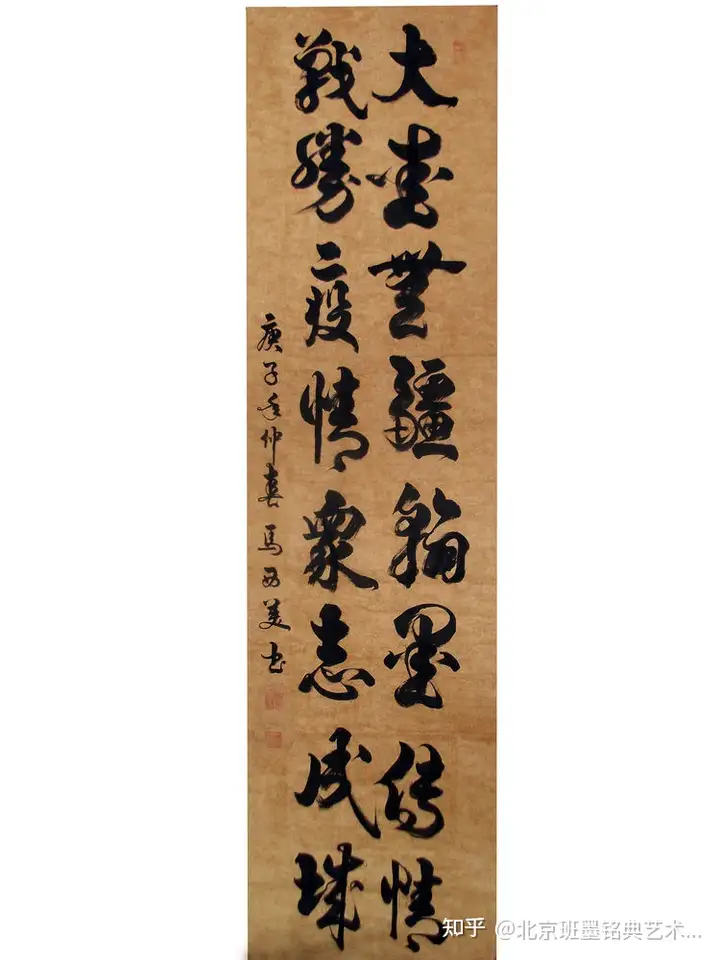 大爱無疆翰墨传情
戰勝疫情衆志成城
庚子年仲春馬西美书
知乎 @北京班墨铭典艺术...